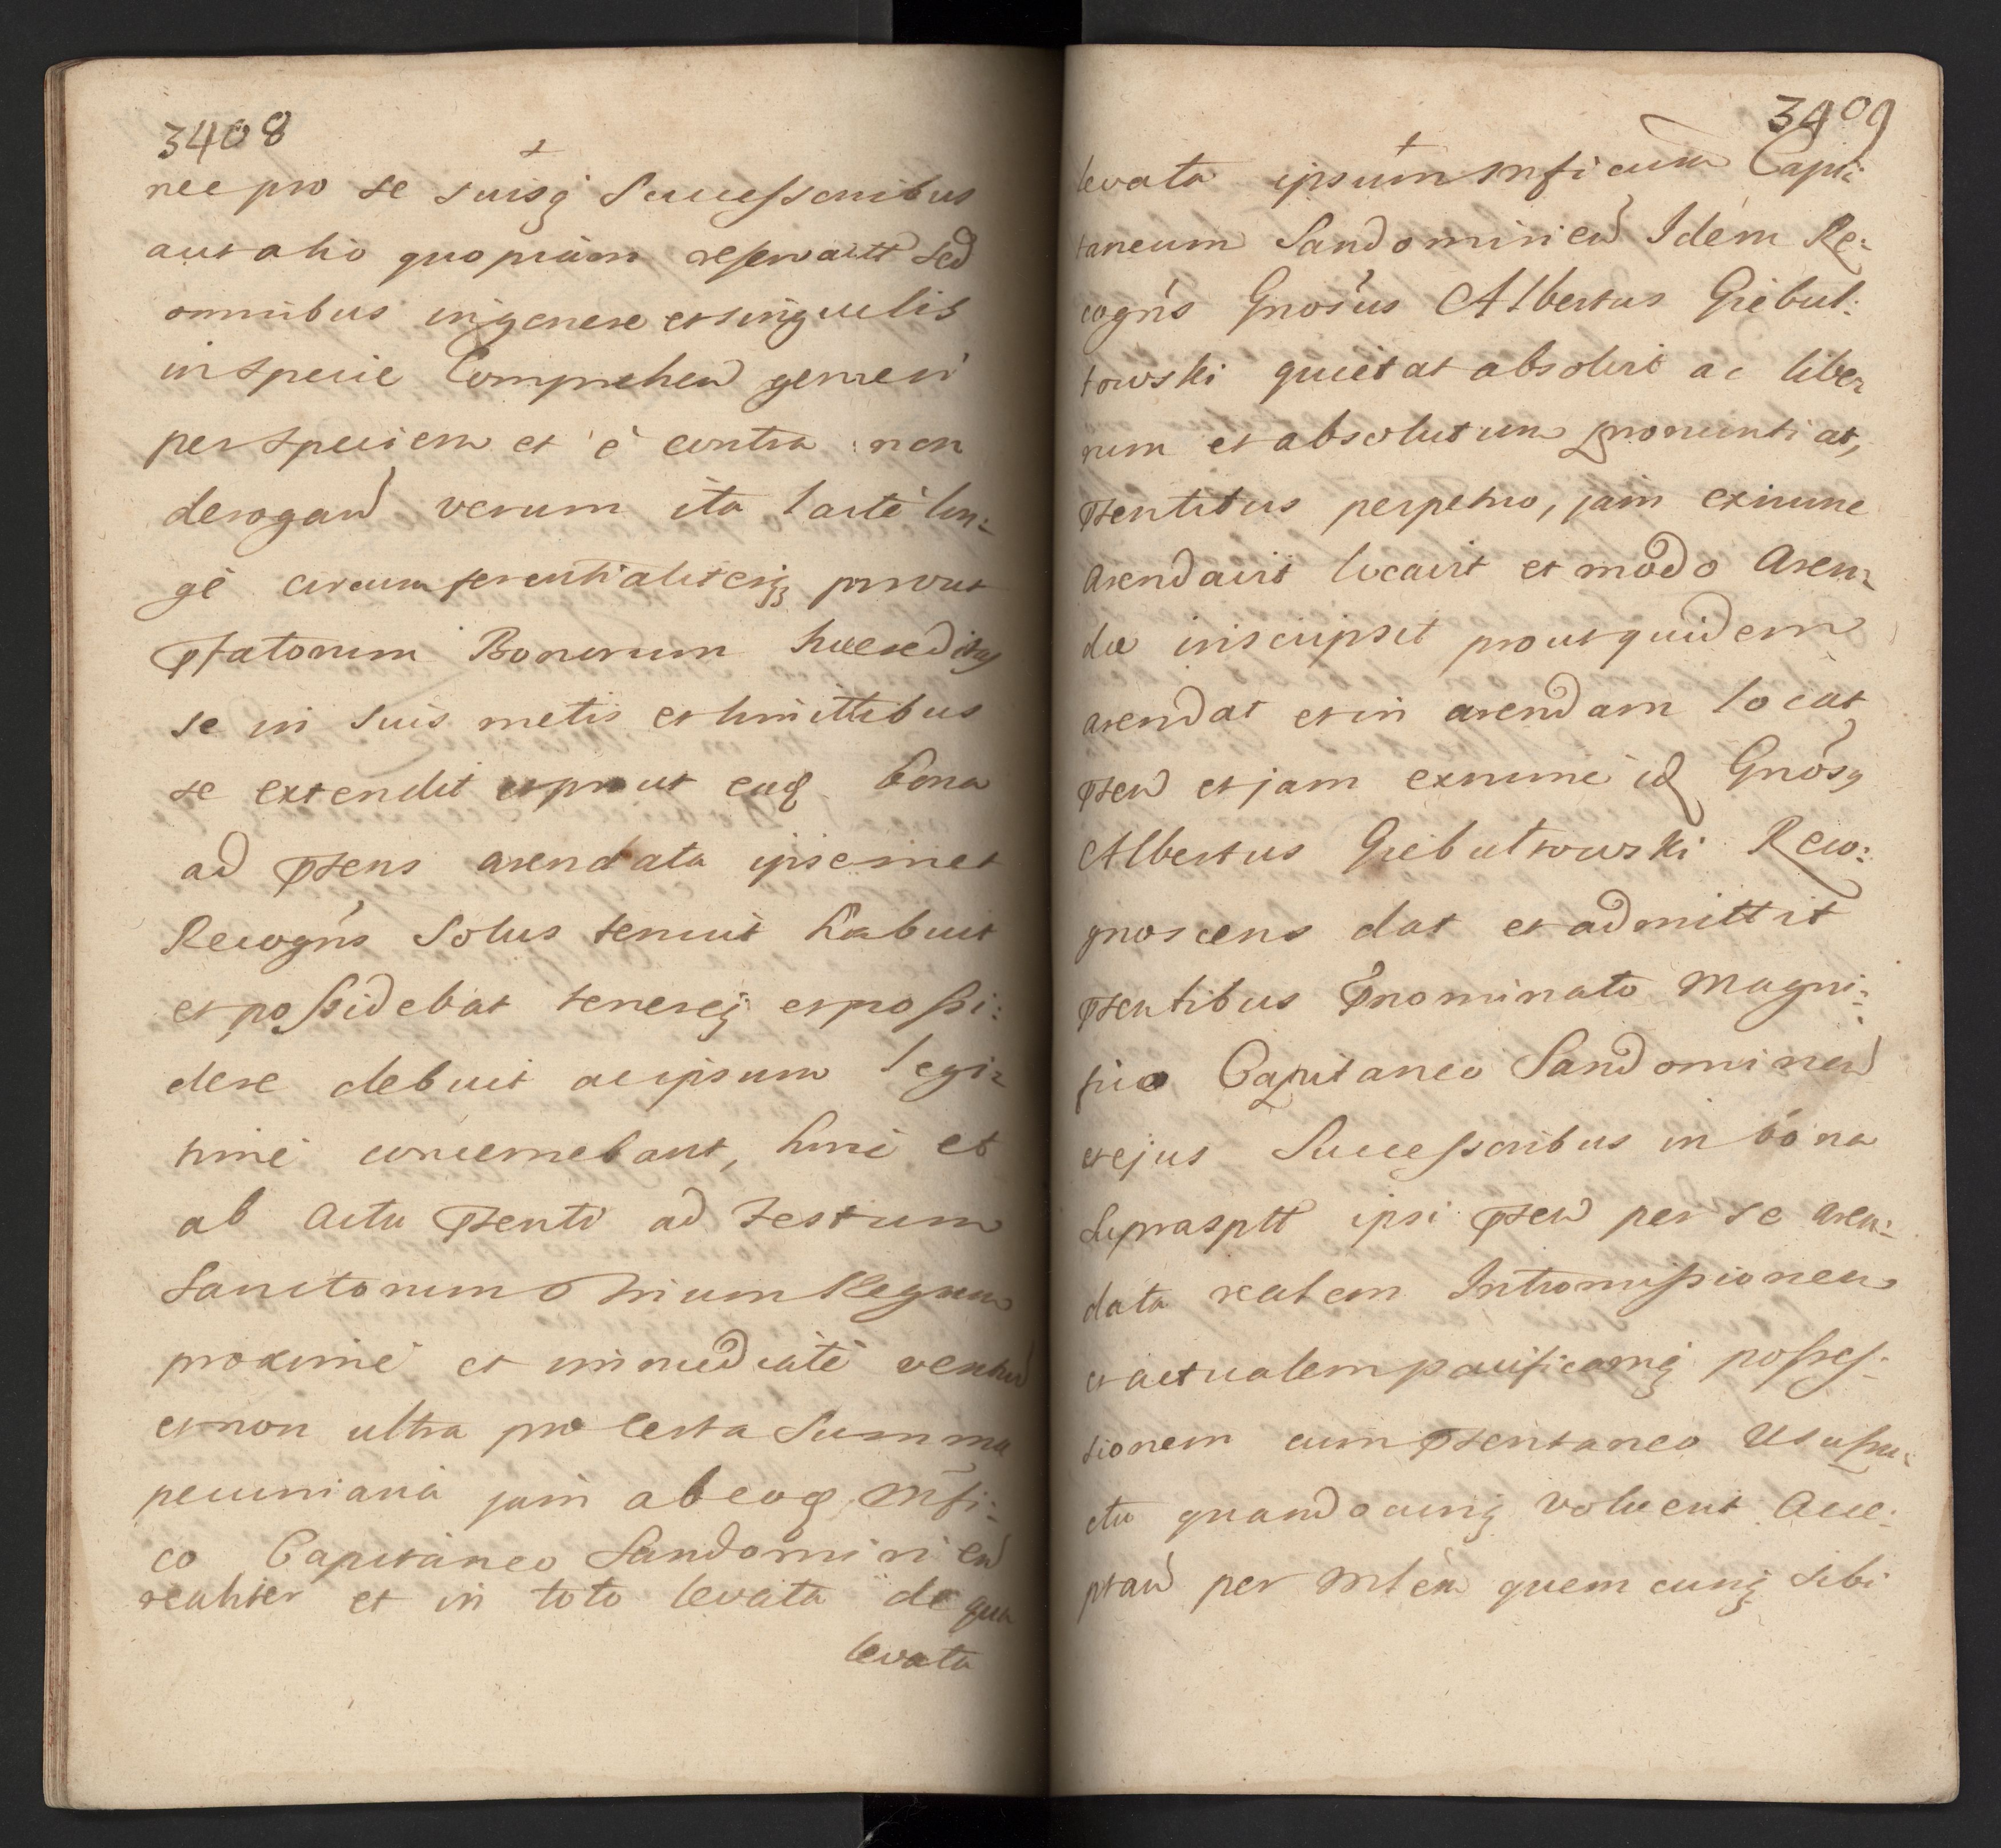 3408
+
nec pro se suisq Successoribus
aut alio quopiam reservatt sed
omnibus in genere et singuelis
in specie Comprehen generi
per speciem et è contra non
derogan verum ita latè lon:
gè circumferentialiterq prout
pstatorum Bonorum haeredits
se in suis metis et limittibus
se extendit et prout eaq bona
ad psens arendata ipsemet
Recogns Solus tenuit habuit
et possidebat tenereq et possi:
dere debuit ac ipsum legi:
time concernebant, hinc et
ab actu psenti ad Festum
Sanctorum Trium Regum
proximè et immediatè ventu
et non ultra pro certa Summa
pecuniaria jam ab eoq Mfi:
co Capitaneo Sandomirien
realiter et in toto levata de qua
levata
3409
+
levata ipsum Mficum Capi:
taneum Sandomirien Idem Re:
cogns Gnosus Albertus Giebul:
towski quietat absolvit ac libe:
rum et absolutum pronuntiat,
psentibus perpetuo, jam exnunc
Arendavit locavit et modo Aren:
dae inscripsit prout quidem
arendat et in arendam locat
psen et jam exnunc id Gnosq
Albertus Giebultowski Reco:
gnoscens dat et admittit
psentibus pnominato Magni:
fico Capitaneo Sandomirien
et ejus Successoribus in bona
suprasptt ipsi psen per se aren:
data realem Intromissionem
et actualem pacificamq posses:
sionem cum psentaneo Usufru:
ctu quandocunq voluerit Acce:
ptan per Mlem quemcunq sibi